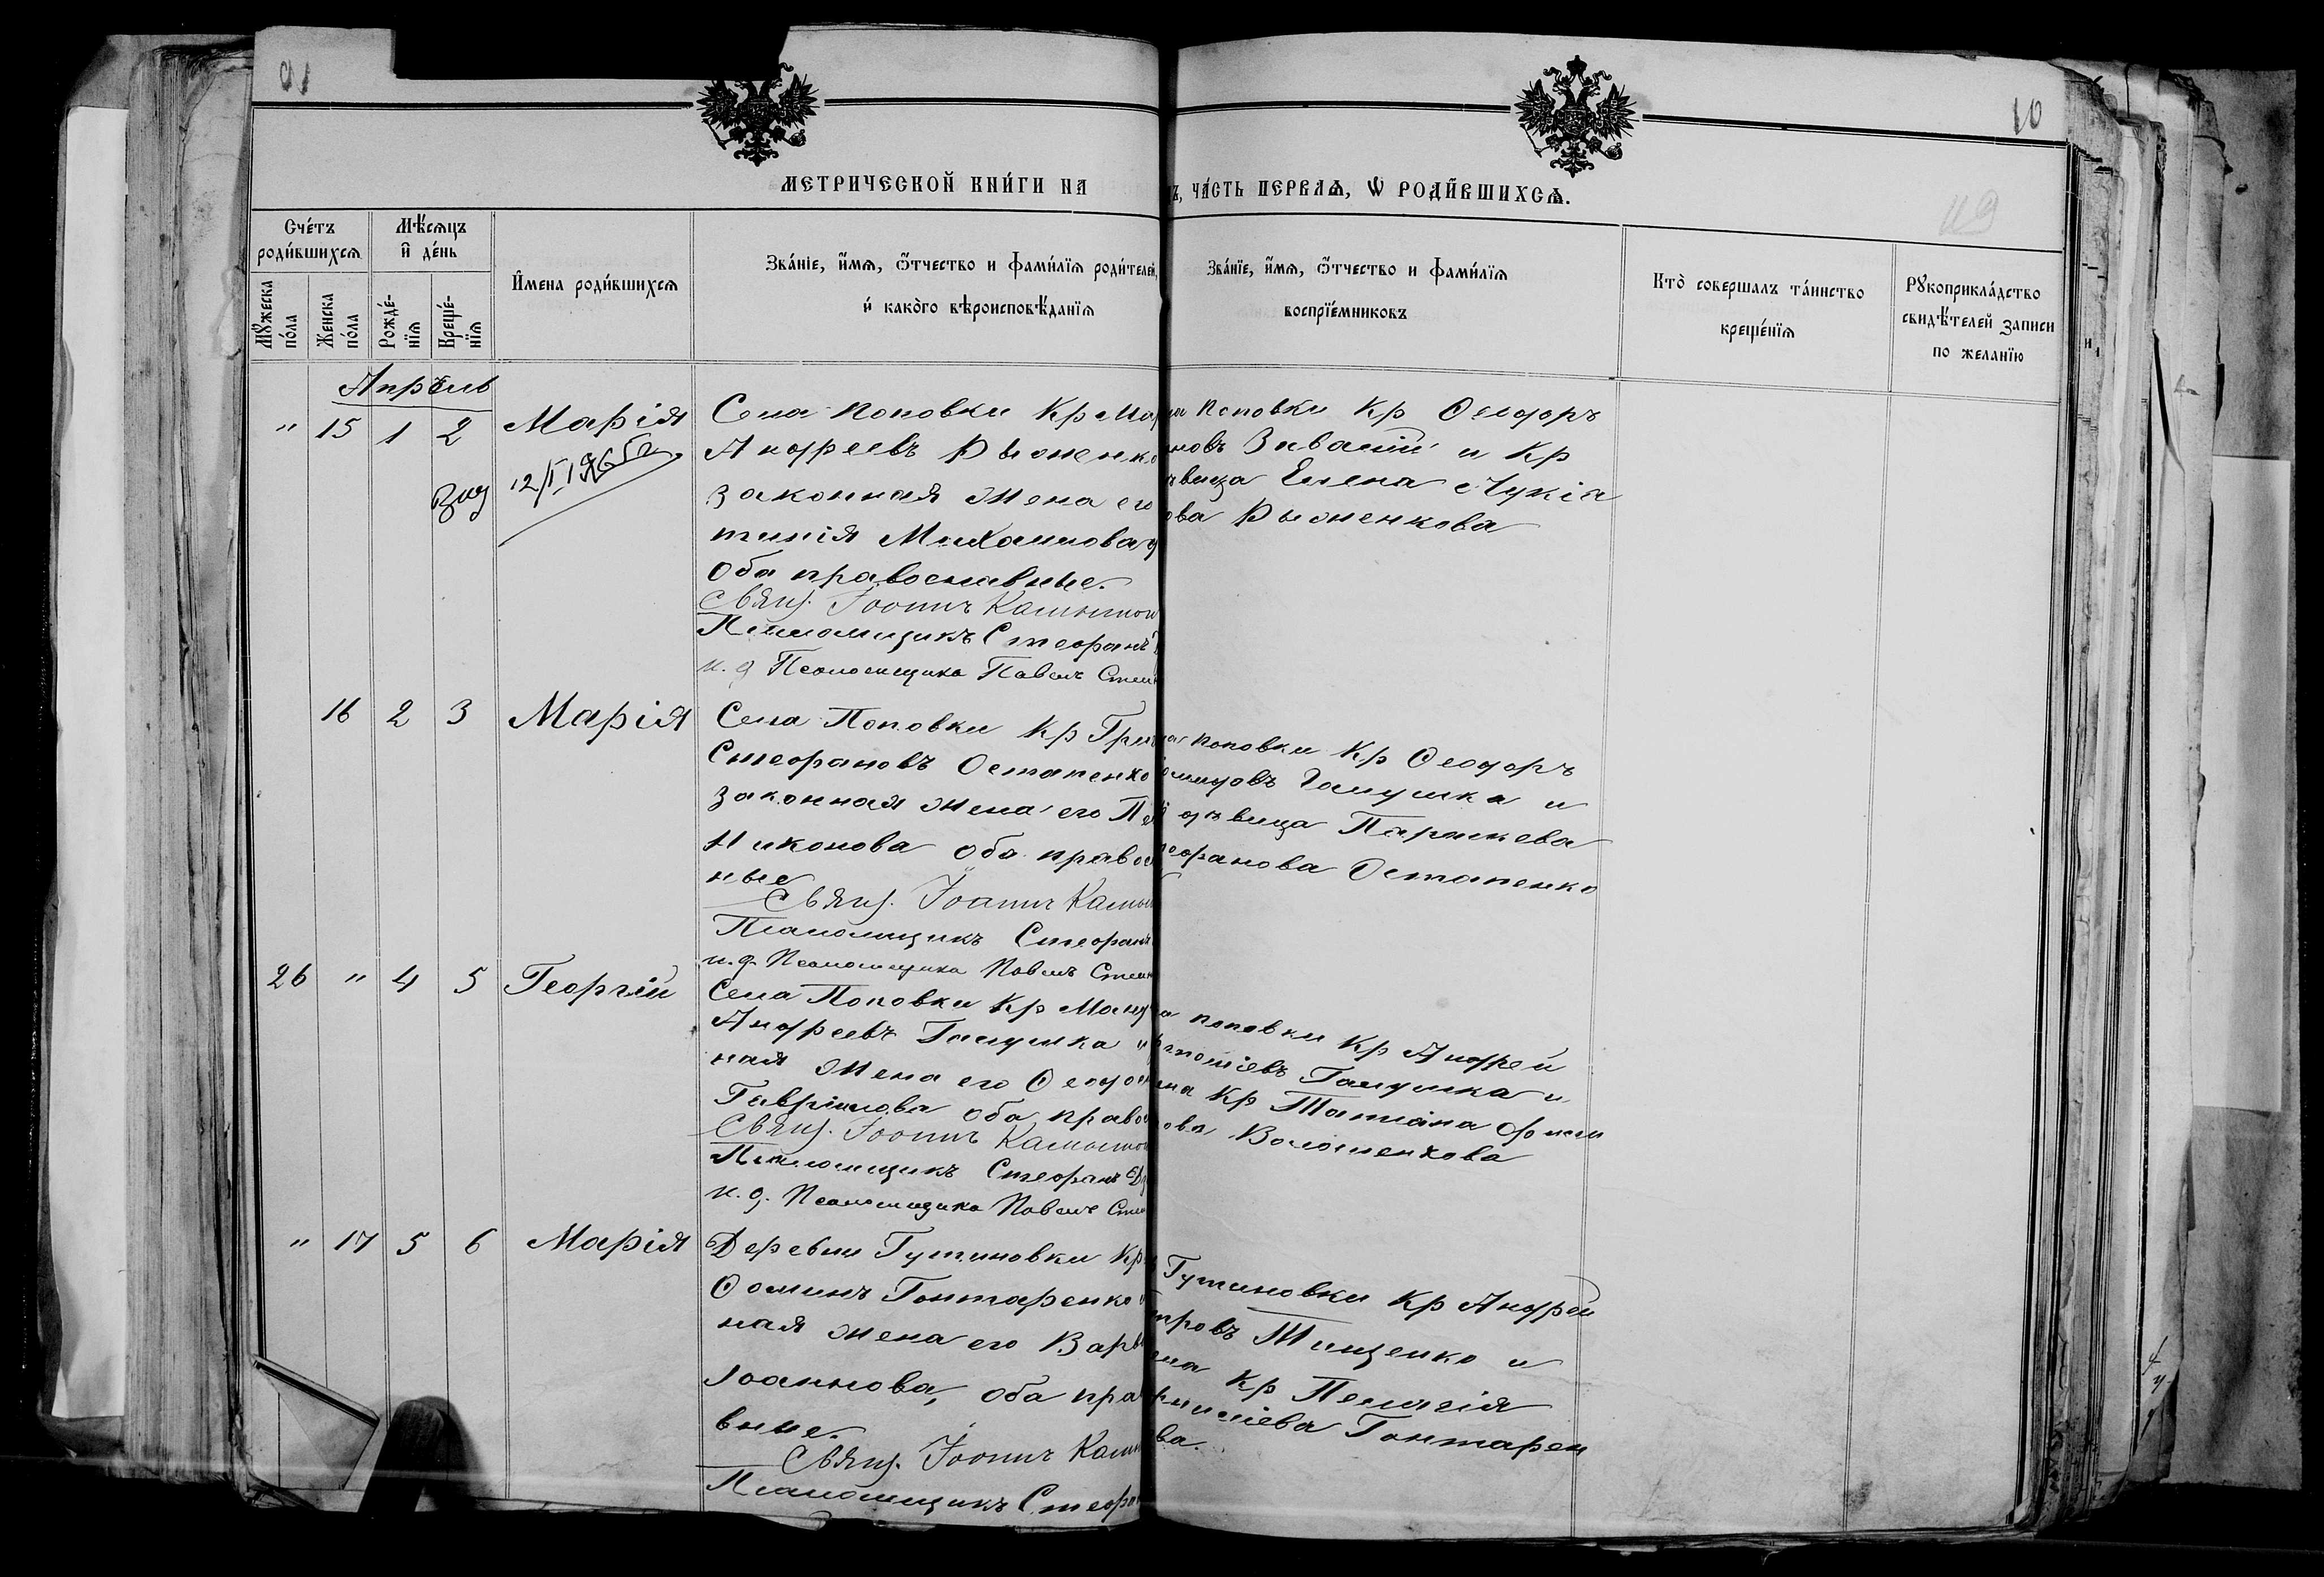 10
МЕТРИЧЕСКОЙ КНИ́ГИ НА
Ъ, ЧА́СТЬ ПЕРВАѦ, Ѡ РОДИ́ВШИХСѦ.
119
Сче́тъ родившихсѧ
Мѣ́сѧцъ и де́нь
Мꙋжеска по́ла
Же́нска по́ла
Рожде́-нїѧ
Креще́-нїѧ
Имена роди́вшихсѧ
Зва́нїе, и́мѧ, ѻ́тчество и фами́лїѧ роди́телей,
и како́го вѣроисповѣ́данїѧ
Зва́нїе, и́мѧ, ѻ́тчество и фами́лїѧ
воспрїе́мниковъ
Кто̀ соверша́лъ та́инство
креще́нїѧ
Рꙋкоприкла́дство
свидѣ́телей записи
по жела́нїю
Апрѣль
" 15 1 2 Марія
12/I 1965г
Села Поповки Кр Ма
Андреевъ Рыженко
законная жена его
тинія Михаилова
Оба православные.
Свящ. Іоаннъ
Псаломщикъ Стефанъ
и. д Псаломщика Павелъ
Поповки Кр Ѳеодоръ
новъ Зиваній и Кр
вица Елена Лукіа
ова Рыженкова
16 2 3 Марія
Села Поповки Кр Гри
Стефановъ Остапенко
законная жена его Пе
Никонова оба правос
ные
Свящ. Іоаннъ
Псаломщикъ Стефанъ
и. д. Псаломщика Павелъ
Поповки Кр Ѳеодоръ
Галушка и
дѣвица Параскева
ефанова Остапенко
26 " 4 5 Георгій
Села Поповки Кр Манд
Андреевъ Галушка и
ная жена его Ѳеодос
Гавріилова оба право
Свящ. Іоаннъ
Псаломщикъ Стефанъ
и. д. Псаломщика Павелъ
а Поповки Кр Андрей
Галушка и
на Кр Татіана Фили
ова Волошенкова
" 17 5 6 Марія
Деревни Гутиновки Кр
Ѳоминъ Гонтаренко
ная жена его Варв
Іоаннова, оба пра
вные.
Свящ. Іоаннъ
Псаломщикъ Стефа
Гутиновки Кр Андрей
тровъ Тищенко и
на Кр Пелагія
Гонтарен
ва.